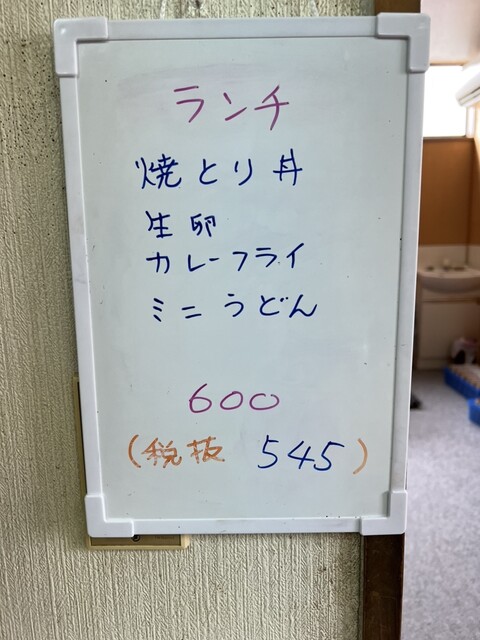 ランチ
焼とり丼
生卵
カレーフライ
ミニうどん
600
(税抜 545)